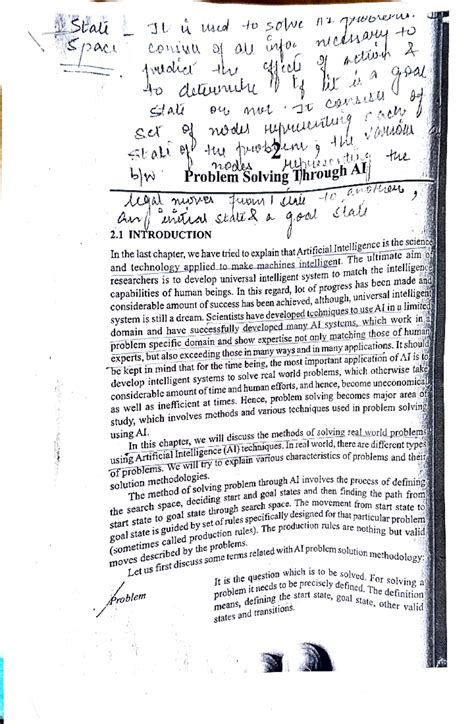 State - It is used to solve AI problems.
Space consists of all info necessary to
predict the effects of action &
to determine if it is a goal
state or not. It consists of
set of nodes representing each
state of the problem & the various
2
nodes representing the
b/w
Problem Solving Through AI
legal moves from 1 state to another,
an initial state & a goal state
2.1 INTRODUCTION
In the last chapter, we have tried to explain that Artificial Intelligence is the science
and technology applied to make machines intelligent. The ultimate aim of
researchers is to develop universal intelligent system to match the intelligence
capabilities of human beings. In this regard, lot of progress has been made and
considerable amount of success has been achieved, although, universal intelligent
system is still a dream. Scientists have developed techniques to use AI in a limited
domain and have successfully developed many AI systems, which work in a
problem specific domain and show expertise not only matching those of human
experts, but also exceeding those in many ways and in many applications. It should
be kept in mind that for the time being, the most important application of AI is to
develop intelligent systems to solve real world problems, which otherwise take
considerable amount of time and human efforts, and hence, become uneconomical
as well as inefficient at times. Hence, problem solving becomes major area of
study, which involves methods and various techniques used in problem solving
using AI.
In this chapter, we will discuss the methods of solving real world problems
using Artificial Intelligence (AI) techniques. In real world, there are different types
of problems. We will try to explain various characteristics of problems and their
solution methodologies.
The method of solving problem through AI involves the process of defining
the search space, deciding start and goal states and then finding the path from
start state to goal state through search space. The movement from start state to
goal state is guided by set of rules specifically designed for that particular problem
(sometimes called production rules). The production rules are nothing but valid
moves described by the problems.
Let us first discuss some terms related with AI problem solution methodology:
Problem
It is the question which is to be solved. For solving a
problem it needs to be precisely defined. The definition
means, defining the start state, goal state, other valid
states and transitions.